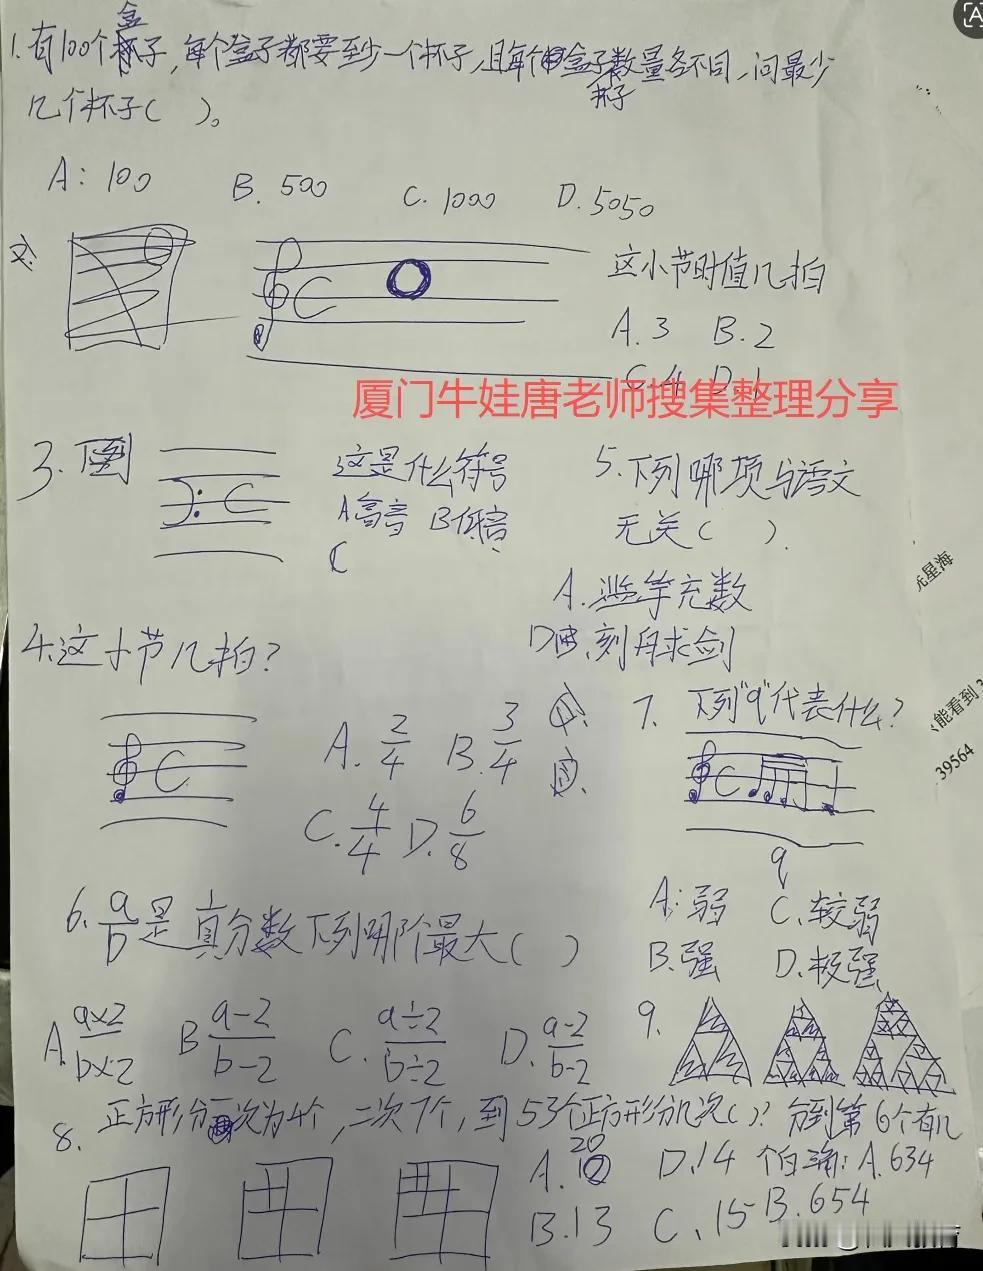 1.有100个盒子,每个盒子都要至少一个杯子,且每个盒子杯子数量各不同,问最少
几个杯子( )。
A:100 B.500 C.1000 D.5050
2.
这小节时值几拍
A.3 B.2
C.4 D.1
厦门牛娃唐老师搜集整理分享
3.
这是什么符号
A高音 B低音
5.下列哪项与语文
无关( ).
A.滥竽充数
D.刻舟求剑
4.这小节几拍?
A.2/4 B.3/4
C.4/4 D.6/8
7.下列"q"代表什么?
q
A:弱 C.较弱
B.强 D.极强
6.a/b是真分数下列哪个最大( )
A.a×2/b×2 B a-2/b-2 C.a÷2/b÷2 D.a-2/b-2
8.正方形分一次为4个,二次7个,到53个正方形分几次( )?
A.20 D.14
B.13 C.15
9.
分到第6个有几
个白三角:A.634
B.654
光星海
能看到
39564